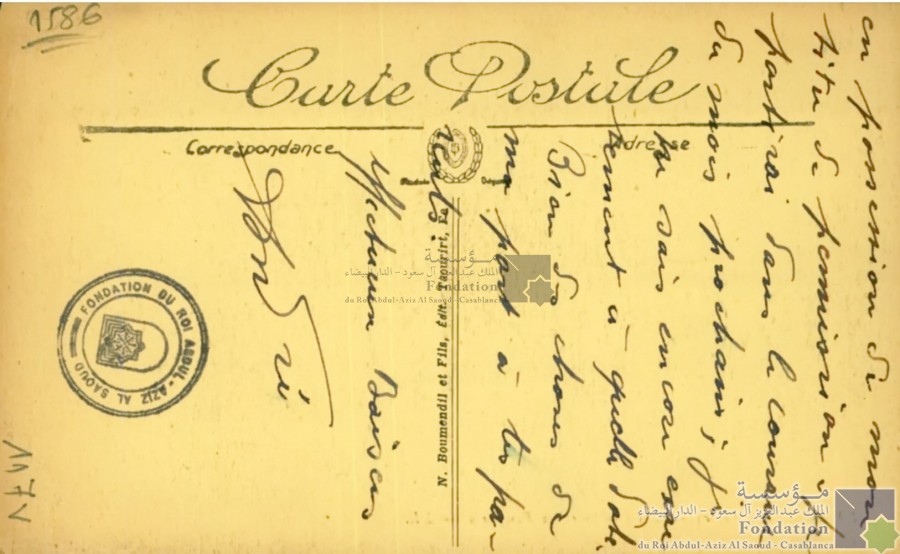 1586
Carte Postale
Correspondance
Adresse
N. Boumendil et Fils, Édit. Taourirt,
en possession de mon
titre de permission je
partirai dans le courant
du mois prochain; je
ne sais encore exac
tement à quelle date
Bien de choses de
ma part à tes pa
rents.
Affectueux Baisers
FONDATION DU ROI ABDUL-AZIZ AL SAOUD
مؤسسة
الملك عبد العزيز آل سعود - الدار البيضاء
Fondation
du Roi Abdul-Aziz Al Saoud - Casablanca
مؤسسة
الملك عبد العزيز آل سعود - الدار البيضاء
Fondation
du Roi Abdul-Aziz Al Saoud - Casablanca